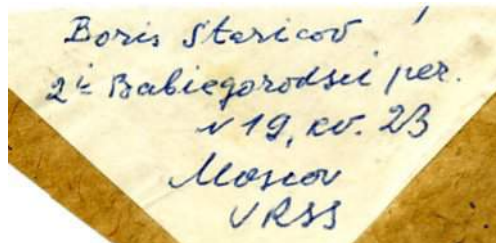 Boris Staricov
2º Babiegorodsci per.
N 19, kv. 23
Moscov
URSS